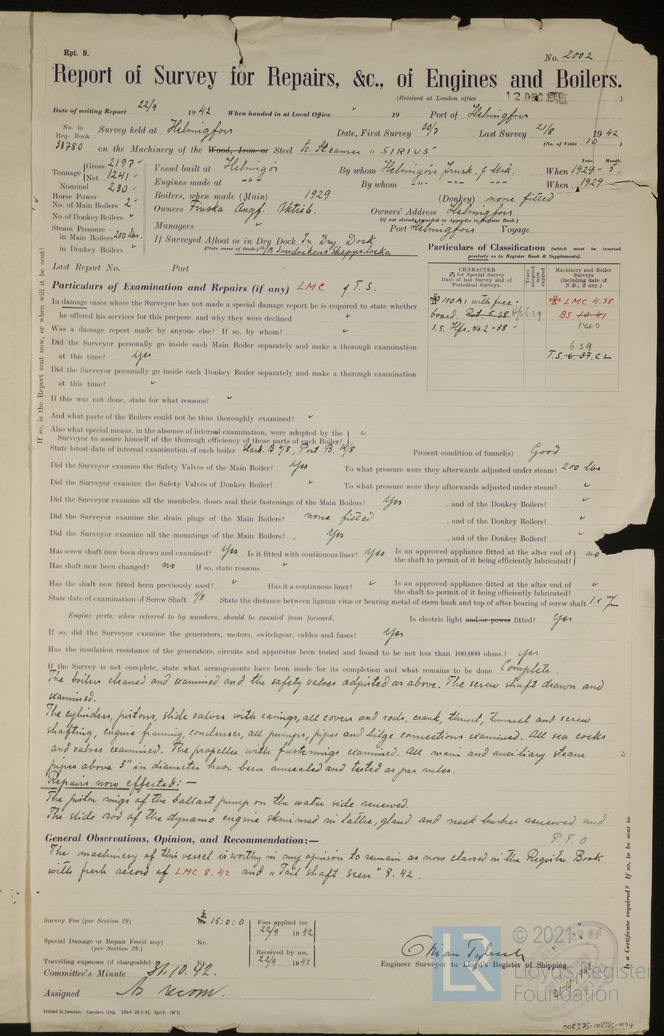 Rpt. 9.
No. 2002
Report of Survey for Repairs, &c., of Engines and Boilers.
(Received at London office 12 DEC )
Date of writing Report 22/9 1942 When handed in at Local Office " 19 Port of Helsingfors
No. in Reg. Book 33780 Survey held at Helsingfors Date, First Survey 20/7 Last Survey 21/8 1942
(No. of Visits 10 )
on the Machinery of the Wood, Iron or Steel Sc. Steamer "SIRIUS"
Tonnage Gross 2197 Net 1241 Vessel built at Helsingör By whom Helsingörs When 1929-5
Nominal Horse Power 230 Engines made at " " By whom " " When 1929
No. of Main Boilers 2 Boilers, when made (Main) 1929 (Donkey) none fitted
No. of Donkey Boilers " Owners Finska Ångf. Aktieb. Owners' Address Helsingfors
(if not already recorded in Appendix to Register Book.)
Steam Pressure in Main Boilers 200 lbs Managers " Port Helsingfors Voyage
in Donkey Boilers " If Surveyed Afloat or in Dry Dock In Dry Dock
(State name of Dock.) Sandvikens Skeppsdocka
Particulars of Classification (which must be inserted precisely as in Register Book & Supplements).
CHARACTER for Special Survey Date of last Survey and of Periodical Surveys.
Machinery and Boiler Surveys (including date of N.B., if any.)
100A1 with free-
board.
S.S. Hfs. No.2-38
LMC 4.38
BS 10.41
1.40
6.39
T.S. 6.37. CL
Last Report No. Port
Particulars of Examination and Repairs (if any) LMC & T.S.
In damage cases where the Surveyor has not made a special damage report he is required to state whether
he offered his services for this purpose, and why they were declined "
Was a damage report made by anyone else? If so, by whom? "
Did the Surveyor personally go inside each Main Boiler separately and make a thorough examination
at this time? Yes
Did the Surveyor personally go inside each Donkey Boiler separately and make a thorough examination
at this time? "
If this was not done, state for what reasons? "
And what parts of the Boilers could not be thus thoroughly examined? "
Also what special means, in the absence of internal examination, were adopted by the
Surveyor to assure himself of the thorough efficiency of those parts of each Boiler? "
State latest date of internal examination of each boiler Starb. B 4/8, Port B. Present condition of funnel(s) Good
Did the Surveyor examine the Safety Valves of the Main Boiler? Yes To what pressure were they afterwards adjusted under steam? 200 lbs
Did the Surveyor examine the Safety Valves of Donkey Boiler? " To what pressure were they afterwards adjusted under steam? "
Did the Surveyor examine all the manholes, doors and their fastenings of the Main Boilers? Yes , and of the Donkey Boilers? "
Did the Surveyor examine the drain plugs of the Main Boilers? none fitted , and of the Donkey Boilers? "
Did the Surveyor examine all the mountings of the Main Boilers? Yes , and of the Donkey Boilers? "
Has screw shaft now been drawn and examined? Yes Is it fitted with continuous liner? Yes Is an approved appliance fitted at the after end of the shaft to permit of it being efficiently lubricated? no
Has shaft now been changed? no If so, state reasons "
Has the shaft now fitted been previously used? " Has it a continuous liner? " Is an approved appliance fitted at the after end of the shaft to permit of it being efficiently lubricated? "
State date of examination of Screw Shaft 7/8 State the distance between lignum vitæ or bearing metal of stern bush and top of after bearing of screw shaft 1.5 m/m
Engine parts, when referred to by numbers, should be counted from forward. Is electric light and/or power fitted? Yes
If so, did the Surveyor examine the generators, motors, switchgear, cables and fuses? Yes
Has the insulation resistance of the generators, circuits and apparatus been tested and found to be not less than 100,000 ohms? yes
If the Survey is not complete, state what arrangements have been made for its completion and what remains to be done Complete.
The boilers cleaned and examined and the safety valves adjusted as above. The screw shaft drawn and
examined.
The cylinders, pistons, slide valves with casings, all covers and rods, crank, thrust, tunnel and screw
shafting, engine framing, condenser, all pumps, pipes and bilge connections examined. All sea cocks
and valves examined. The propeller with fastenings examined. All main and auxiliary steam
pipes above 3" in diameter have been annealed and tested as per rules.
Repairs now effected:-
The piston rings of the ballast pump on the water side renewed.
The slide rod of the dynamo engine skimmed in lathe, gland and neck bushes renewed and
P.T.O
General Observations, Opinion, and Recommendation:—
The machinery of this vessel is worthy in my opinion to remain as now classed in the Register Book
with fresh record of LMC 8.42 and "Tail shaft seen" 8.42.
Survey Fee (per Section 29) £ 15:0:0 Fees applied for 22/9 1942
Special Damage or Repair Fee (if any) (per Section 29.) Kr.
Travelling expenses (if chargeable) Kr. Received by me, 22/9 1942
Engineer Surveyor to Lloyd's Register of Shipping.
Committee's Minute 31.10.42.
Assigned As recom.
If so, is the Report sent now, or when will it be sent?
Is a Certificate required? If so, to be sent to
© 2021
LR
Lloyd's Register
Foundation
008375-008385-0194